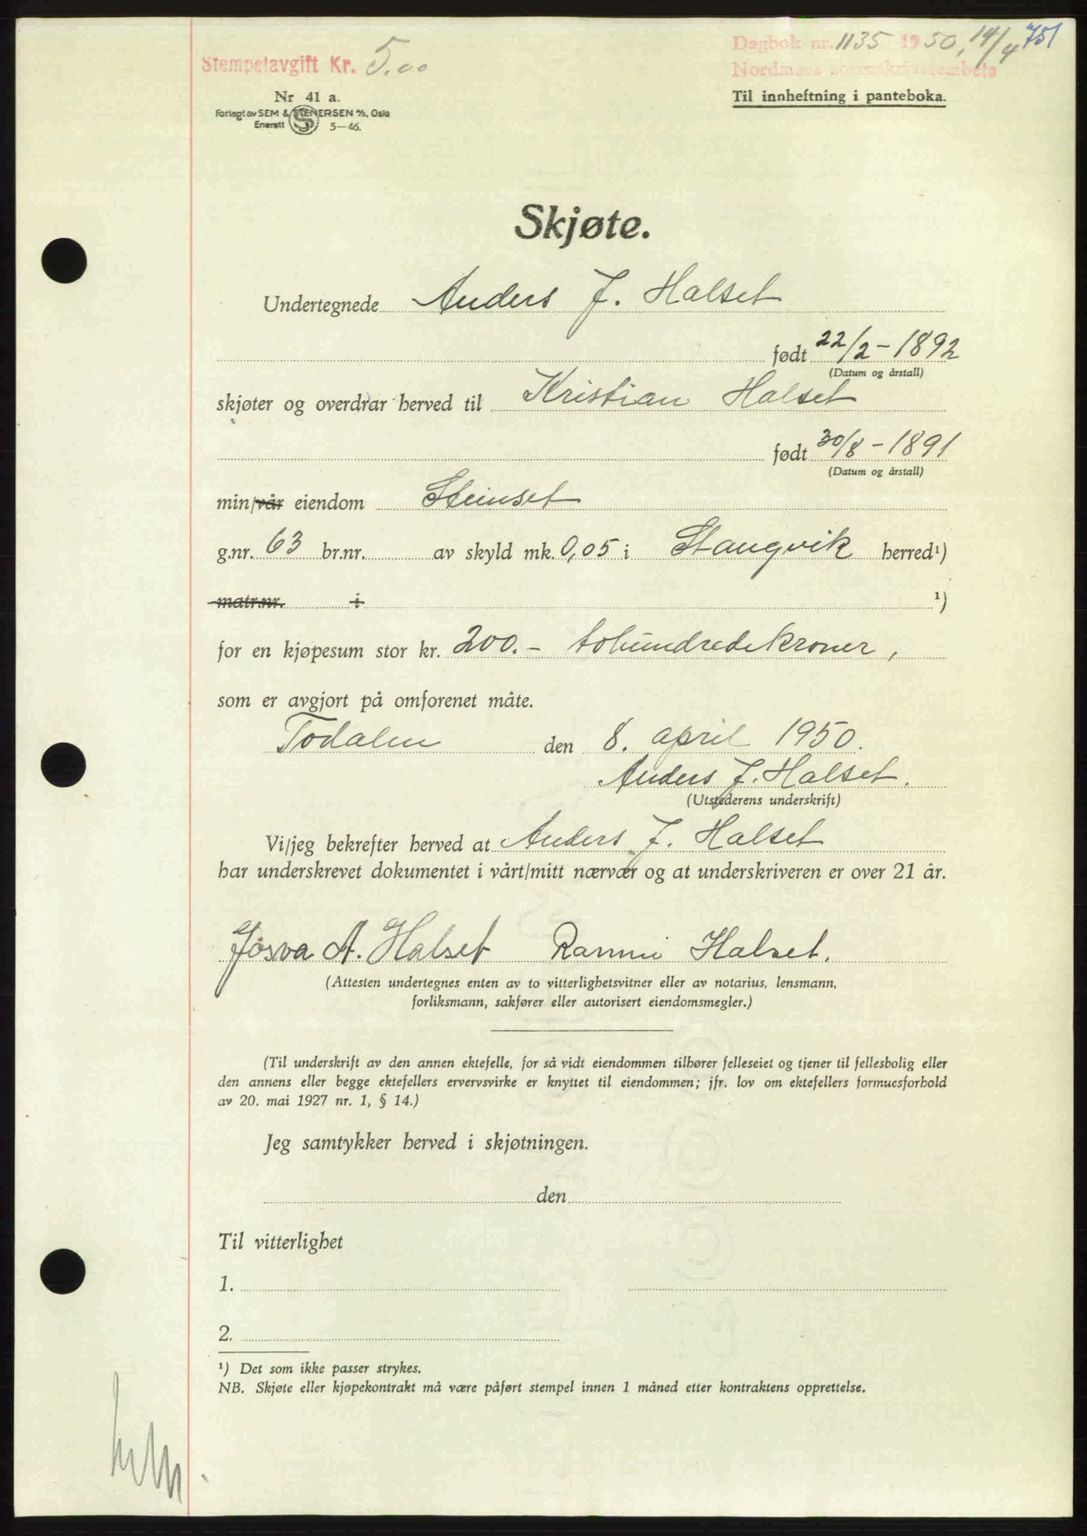 Stempelavgift Kr. 5.00
Dagbok nr. 1135 1950, 14/4 751
Nordmøre sorenskriverembete
Nr 41 a.
Forlagt av SEM & STENERSEN A/S, Oslo
Enerett 5—46.
Til innheftning i panteboka.
Skjøte.
Undertegnede Anders J. Halset
født 22/2 - 1892
(Datum og årstall)
skjøter og overdrar herved til Kristian Halset
født 30/8 - 1891
(Datum og årstall)
min/vår eiendom Steinset
g.nr. 63 br.nr. av skyld mk. 0,05 i Stangvik herred¹)
matr.nr. i ¹)
for en kjøpesum stor kr. 200.- tohundredekroner,
som er avgjort på omforenet måte.
Todalen den 8. april 1950.
Anders J. Halset.
(Utstederens underskrift)
Vi/jeg bekrefter herved at Anders J. Halset
har underskrevet dokumentet i vårt/mitt nærvær og at underskriveren er over 21 år.
Josva A. Halset Halset.
(Attesten undertegnes enten av to vitterlighetsvitner eller av notarius, lensmann,
forliksmann, sakfører eller autorisert eiendomsmegler.)
(Til underskrift av den annen ektefelle, for så vidt eiendommen tilhører felleseiet og tjener til fellesbolig eller
den annens eller begge ektefellers ervervsvirke er knyttet til eiendommen; jfr. lov om ektefellers formuesforhold
av 20. mai 1927 nr. 1, § 14.)
Jeg samtykker herved i skjøtningen.
den
Til vitterlighet
1.
2.
¹) Det som ikke passer strykes.
NB. Skjøte eller kjøpekontrakt må være påført stempel innen 1 måned etter kontraktens opprettelse.